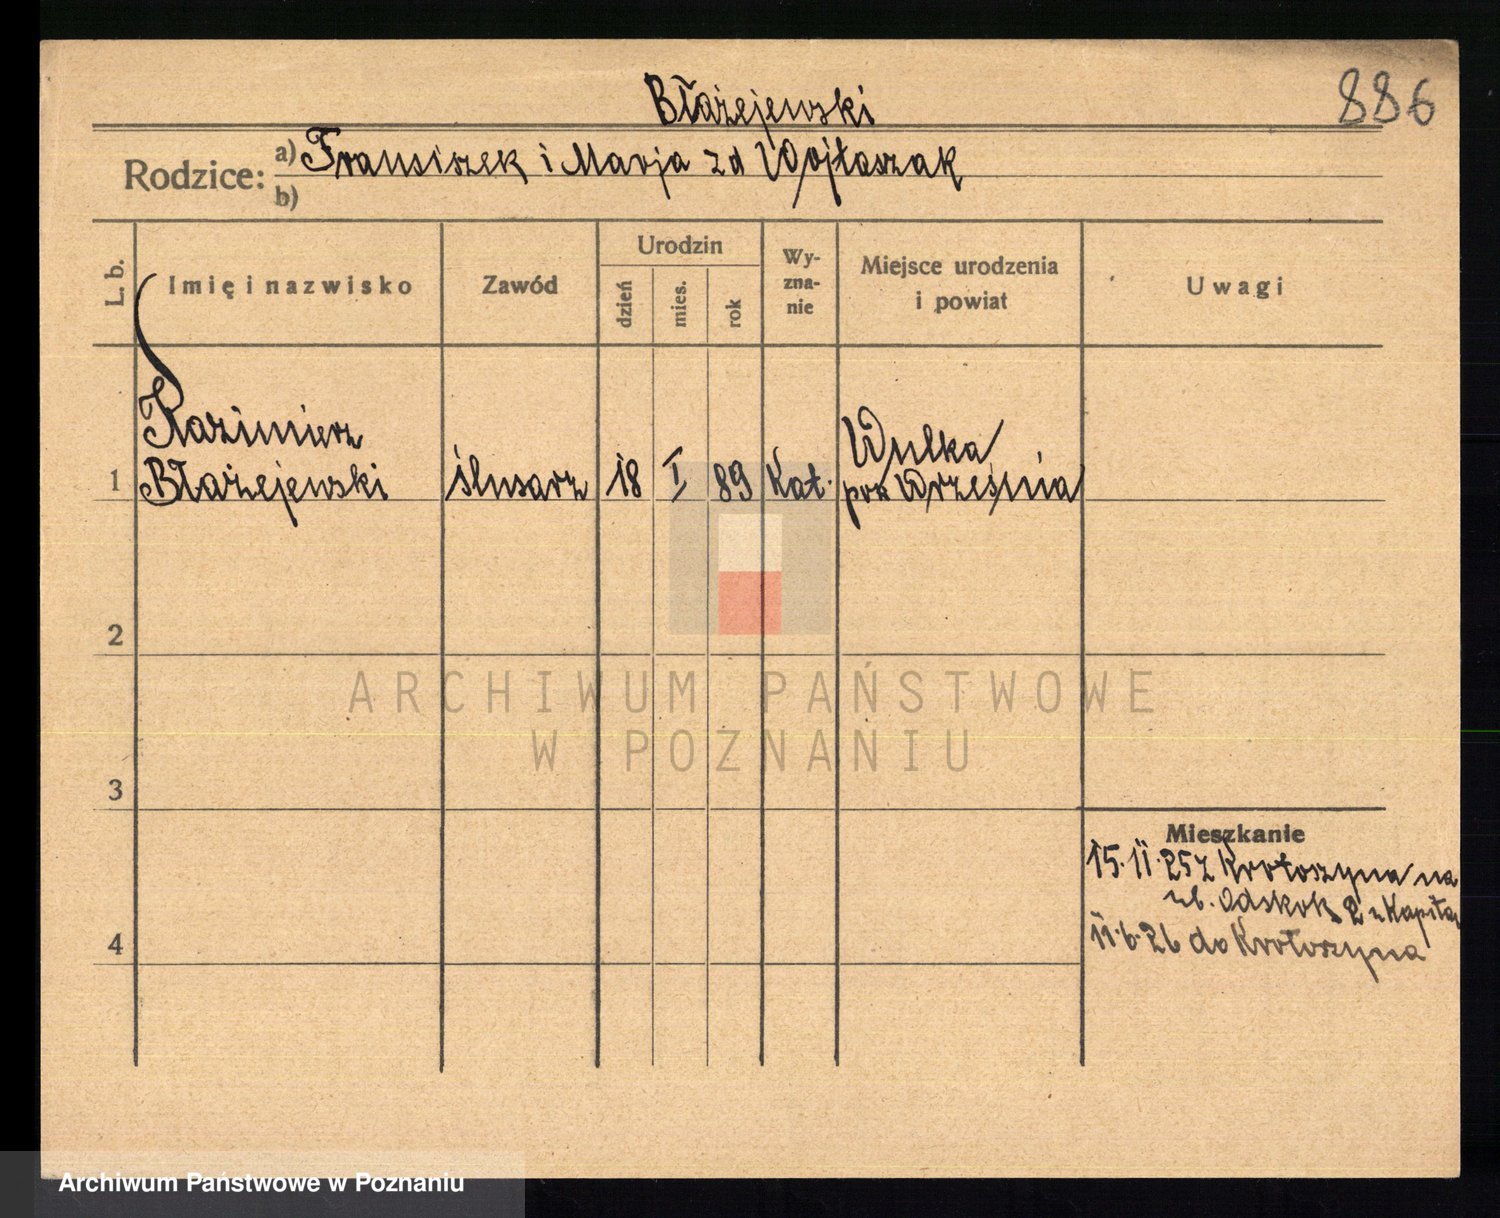 Błażejewski
886
Rodzice:
a) Fransiszek i Marja zd Wojtaszak
b)
L. b.
Imię i nazwisko
Zawód
Urodzin
dzień
mies.
rok
Wy-
zna-
nie
Miejsce urodzenia
i powiat
Uwagi
Kazimierz
1 Błażejewski ślusarz 18 I 89 Kat. Wulka
pow Września
2
3
4
Mieszkanie
15.11.25 z Krotoszyna na
ul. Odskok 2 u Kapita
11.6.26 do Krotoszyna
ARCHIWUM PAŃSTWOWE
W POZNANIU
Archiwum Państwowe w Poznaniu